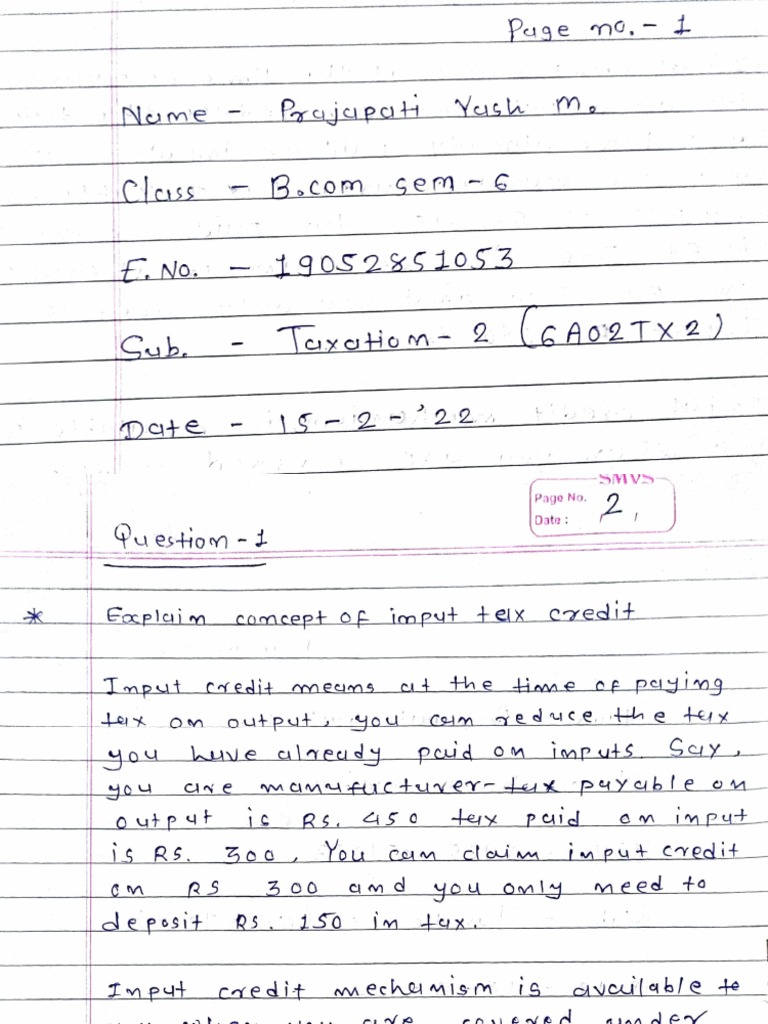 Page no. - 1
Name - Prajapati Yash M.
Class - B.com sem - 6
E. No. - 19052851053
Sub. - Taxation - 2 (6A02TX2)
Date - 15 - 2 - '22
SMVS
Page No. 2
Date :
Question - 1
* Explain concept of input tax credit
Input credit means at the time of paying
tax on output, you can reduce the tax
you have already paid on inputs. Say,
you are manufucturer - tax payable on
output is Rs. 450 tax paid on input
is Rs. 300, You can claim input credit
on RS 300 and you only need to
deposit Rs. 150 in tax.
Input credit mechanism is available to
you when you are covered under